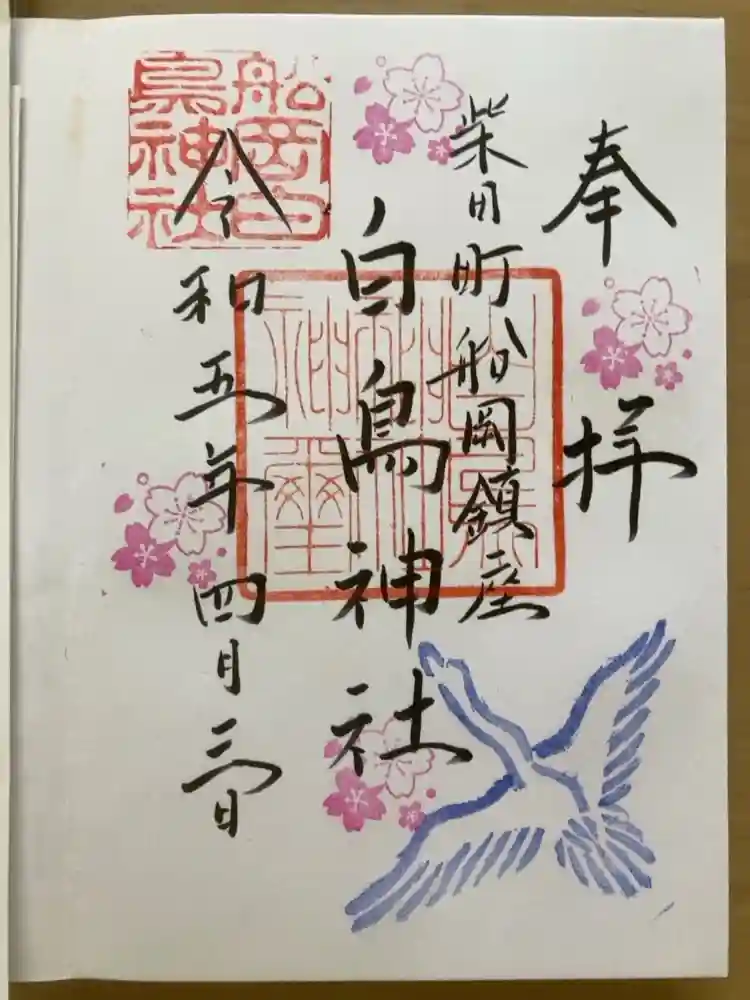 奉拝
柴田町船岡鎮座
白鳥神社
令和五年四月三日
船岡白鳥神社